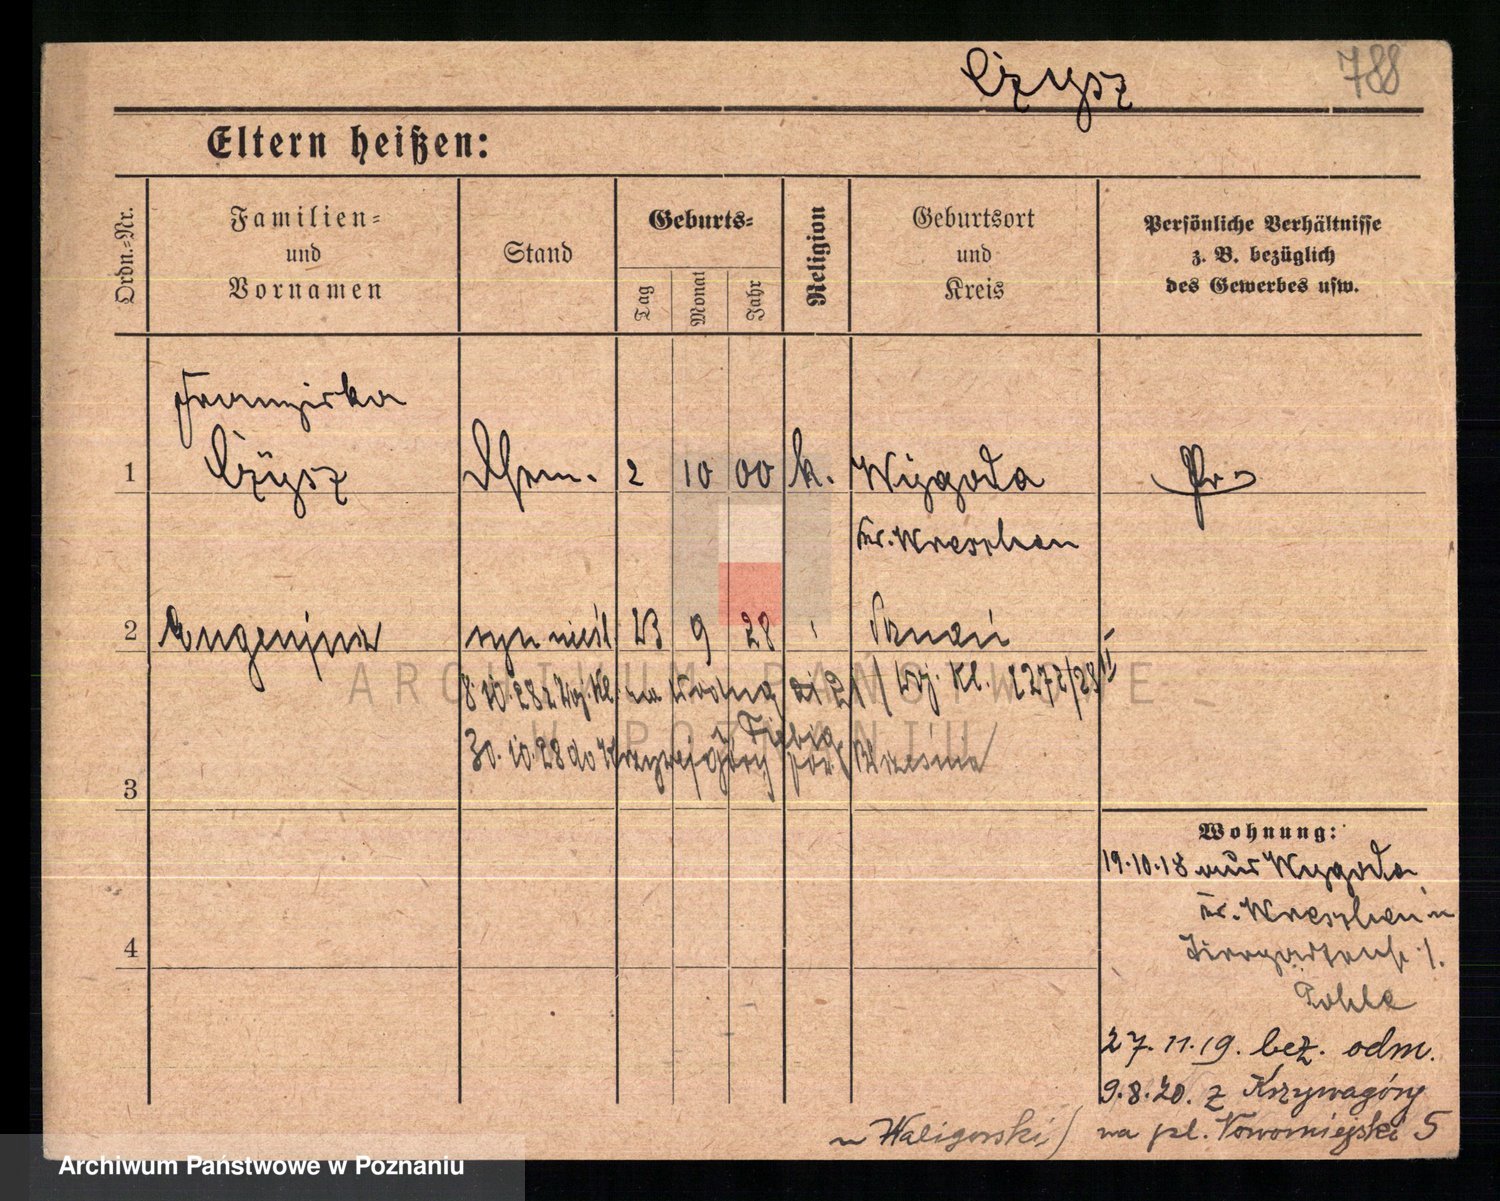 Czysz 788
Eltern heißen:
Ordn.-Nr.
Familien-
und
Vornamen
Stand
Geburts-
Tag
Monat
Jahr
Religion
Geburtsort
und
Kreis
Persönliche Verhältnisse
z. B. bezüglich
des Gewerbes usw.
Franziska
1 Czÿsz 2 10 00 k. Wygoda Pr
Kr. Wreschen
2 Eugenjusz syn nieśl. 23 9 28 Poznań
8.10.28 z Woj. Kl. na Wodną
30.10.28 do Krzywejgóry pow. Września
3
Wohnung:
19.10.18 aus Wygoda
Kr. Wreschen in
4 Tiergartenstr. 1.
Pohle
27.11.19. bez. odm.
9.8.20. z Krzywagóry
u Waligorski) na pl. Nowomiejski 5
ARCHIWUM PAŃSTWOWE
W POZNANIU
Archiwum Państwowe w Poznaniu